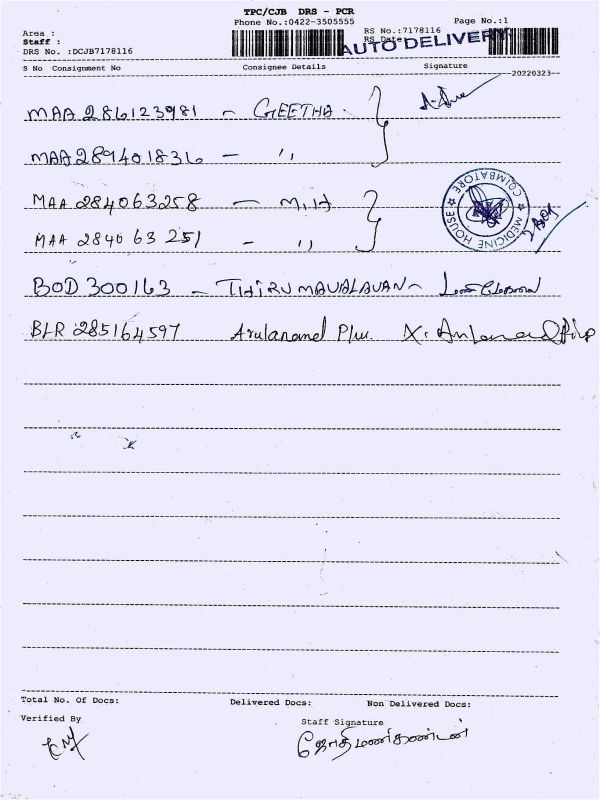 TPC/CJB DRS - PCR
Phone No.:0422-3505555 Page No.:1
Area :
RS No.:7178116
Staff :
RS Date
AUTO DELIVERY
DRS No. :DCJB7178116
S No Consignment No Consignee Details Signature
20220323
MAA 286123981 - GEETHA
MAA 289401836 - ,,
MAA 284063258 - M.H
MAA 284063251 - ,,
MEDICINE HOUSE ★ COIMBATORE ★
BOD 300163 - THIRUMAVALAVAN -
BLR 285164597 Arulanand
Total No. Of Docs: Delivered Docs: Non Delivered Docs:
Verified By Staff Signature
ஜோதிமணிகண்டன்